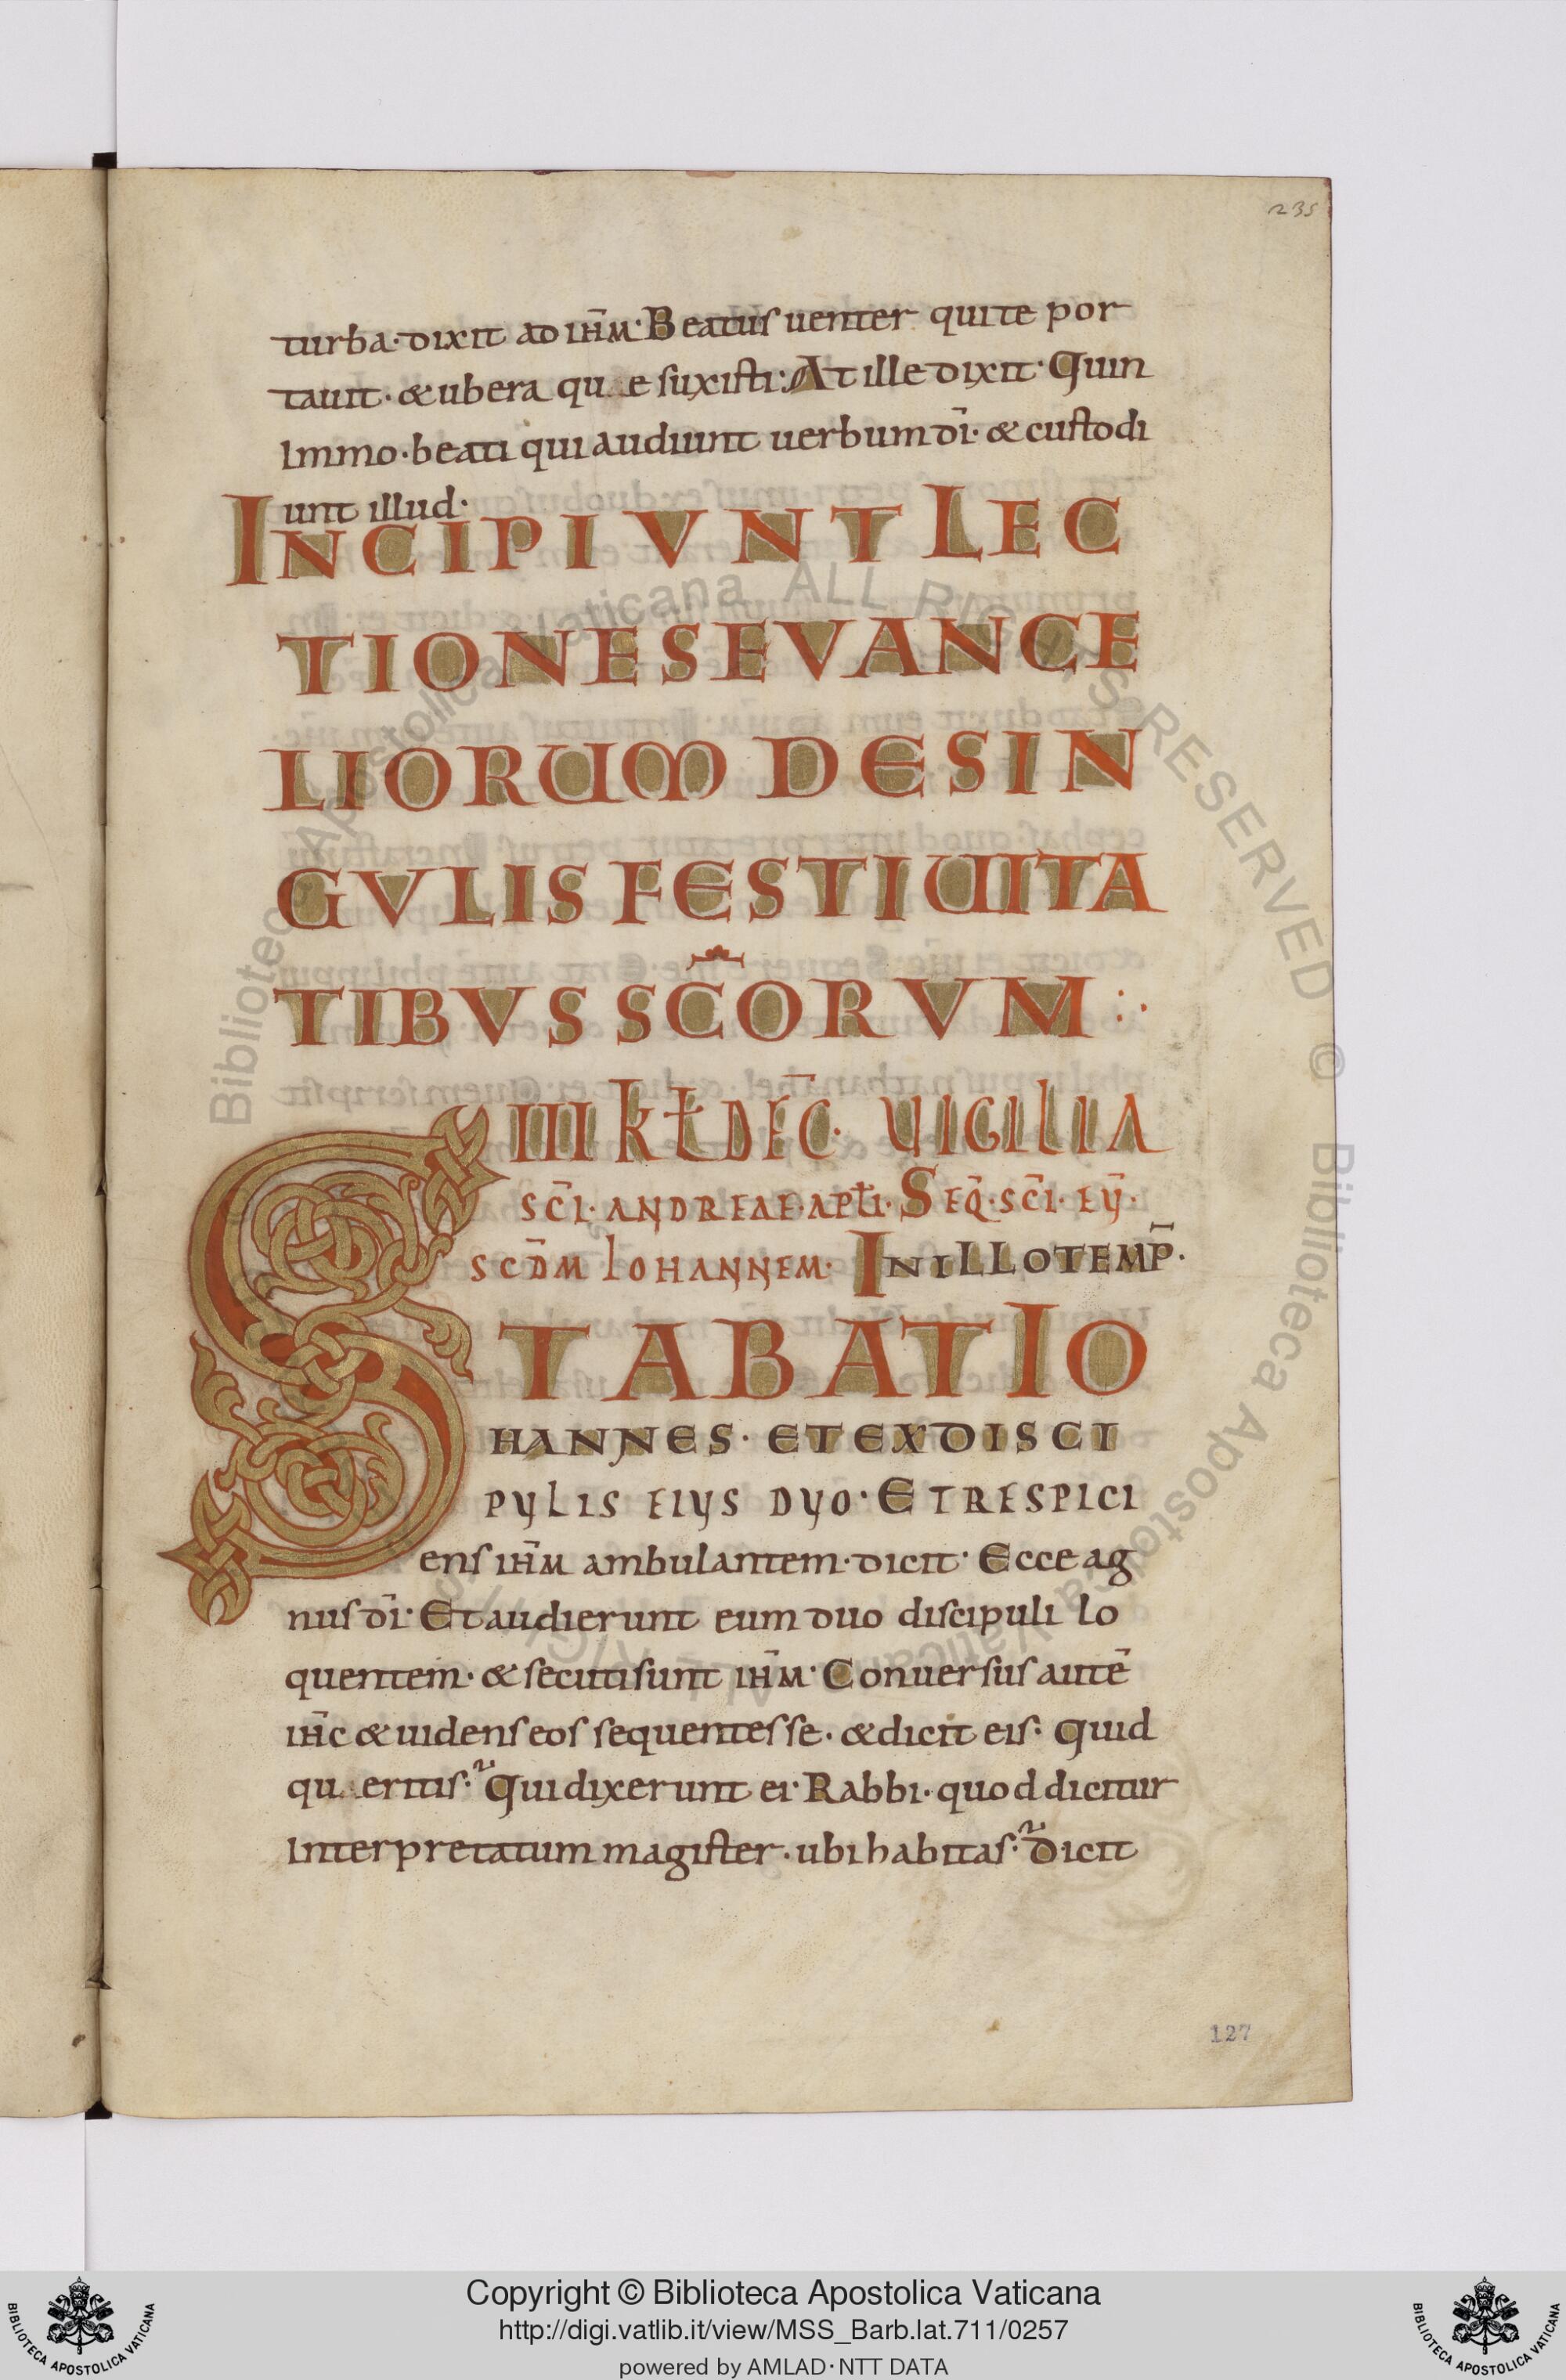 235
turba· dixit ad ih̄m· Beatus uenter qui te por
tauit· & ubera quae suxisti: At ille dixit· Quin
Immo· beati qui audiunt uerbum dī· & custodi
unt illud·
INCIPIVNT LEC
TIONES EVANGE
LIORUM DE SIN
GVLIS FESTIUITA
TIBVS SC̄ORVM
III KŁ DEC̄· UIGILIA
SC̄I· ANDREAE· APŁI· SEQ̄· SC̄I· EŪ·
SCD̄M IOHANNEM· IN ILLO TEMP̄·
STABAT IO
HANNES· ET EX DISCI
PULIS EIUS DUO· ET RESPICI
ens ih̄m ambulantem· dicit· Ecce ag
nus dī· Et audierunt eum duo discipuli lo
quentem· & secuti sunt ih̄m· Conuersus autē
ih̄c & uidens eos sequentes se· & dicit eis· Quid
quaeritis· Qui dixerunt ei· Rabbi· quod dicitur
Interpretatum magister· ubi habitas· Dicit
127
Biblioteca Apostolica Vaticana ALL RIGHTS RESERVED © Biblioteca Apostolica Vaticana ALL RIGHTS
Copyright © Biblioteca Apostolica Vaticana
http://digi.vatlib.it/view/MSS_Barb.lat.711/0257
powered by AMLAD·NTT DATA
BIBLIOTECA APOSTOLICA VATICANA
BIBLIOTECA APOSTOLICA VATICANA